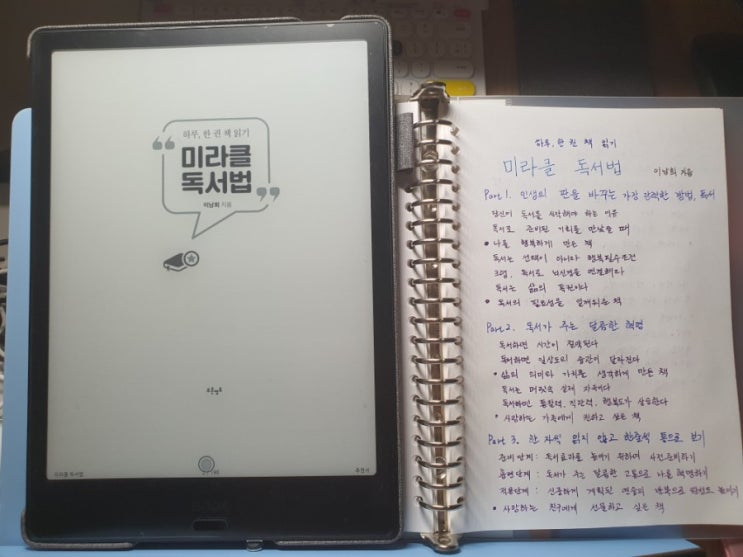 하루, 한 권 책 읽기
미라클
독서법
이남희 지음
미라클 독서법
추천서
BOOX
하루, 한 권 책 읽기
미라클 독서법 이남희 지음
Part 1. 인생의 판을 바꾸는 가장 강력한 방법, 독서
당신이 독서를 시작해야 하는 이유
독서로 준비된 기회를 만났을 때
• 나를 행복하게 만든 책
독서는 선택이 아니다 행복필수조건
크랩, 독서로 뇌신경을 연결해다
독서는 삶의 특권이다
• 독서의 필요성을 일깨워준 책
Part 2. 독서가 주는 달콤한 혁명
독서하면 시간이 절제된다
독서하면 일상도의 습관이 달라진다
• 삶의 의미와 가치를 생각하게 만든 책
독서는 머릿속 실제 자극이다
독서하면 통찰력, 직관력, 행복도가 상승한다
• 사랑하는 가족에게 권하고 싶은 책
Part 3. 한 자씩 읽지 않고 한줄씩 통으로 보기
준비단계: 독서효과를 높이기 위하여 사전준비하기
훈련단계: 독서가 주는 달콤한 고통으로 나를 혁명하기
적용단계: 신중하게 계획된 연습의 반복으로 완성도 높이기
• 사랑하는 친구에게 선물하고 싶은 책